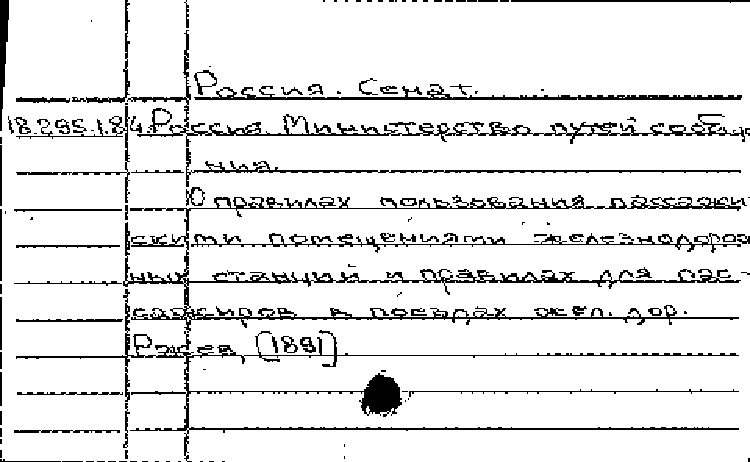 Россия. Сенат.
18.295.1.84 Россия. Министерство путей сообще
ния.
О правилах пользования пассажи
скими помещениями железнодорож
ных станций и правилах для пас-
сажиров в поездах жел. дор.
Ржев, [1891].